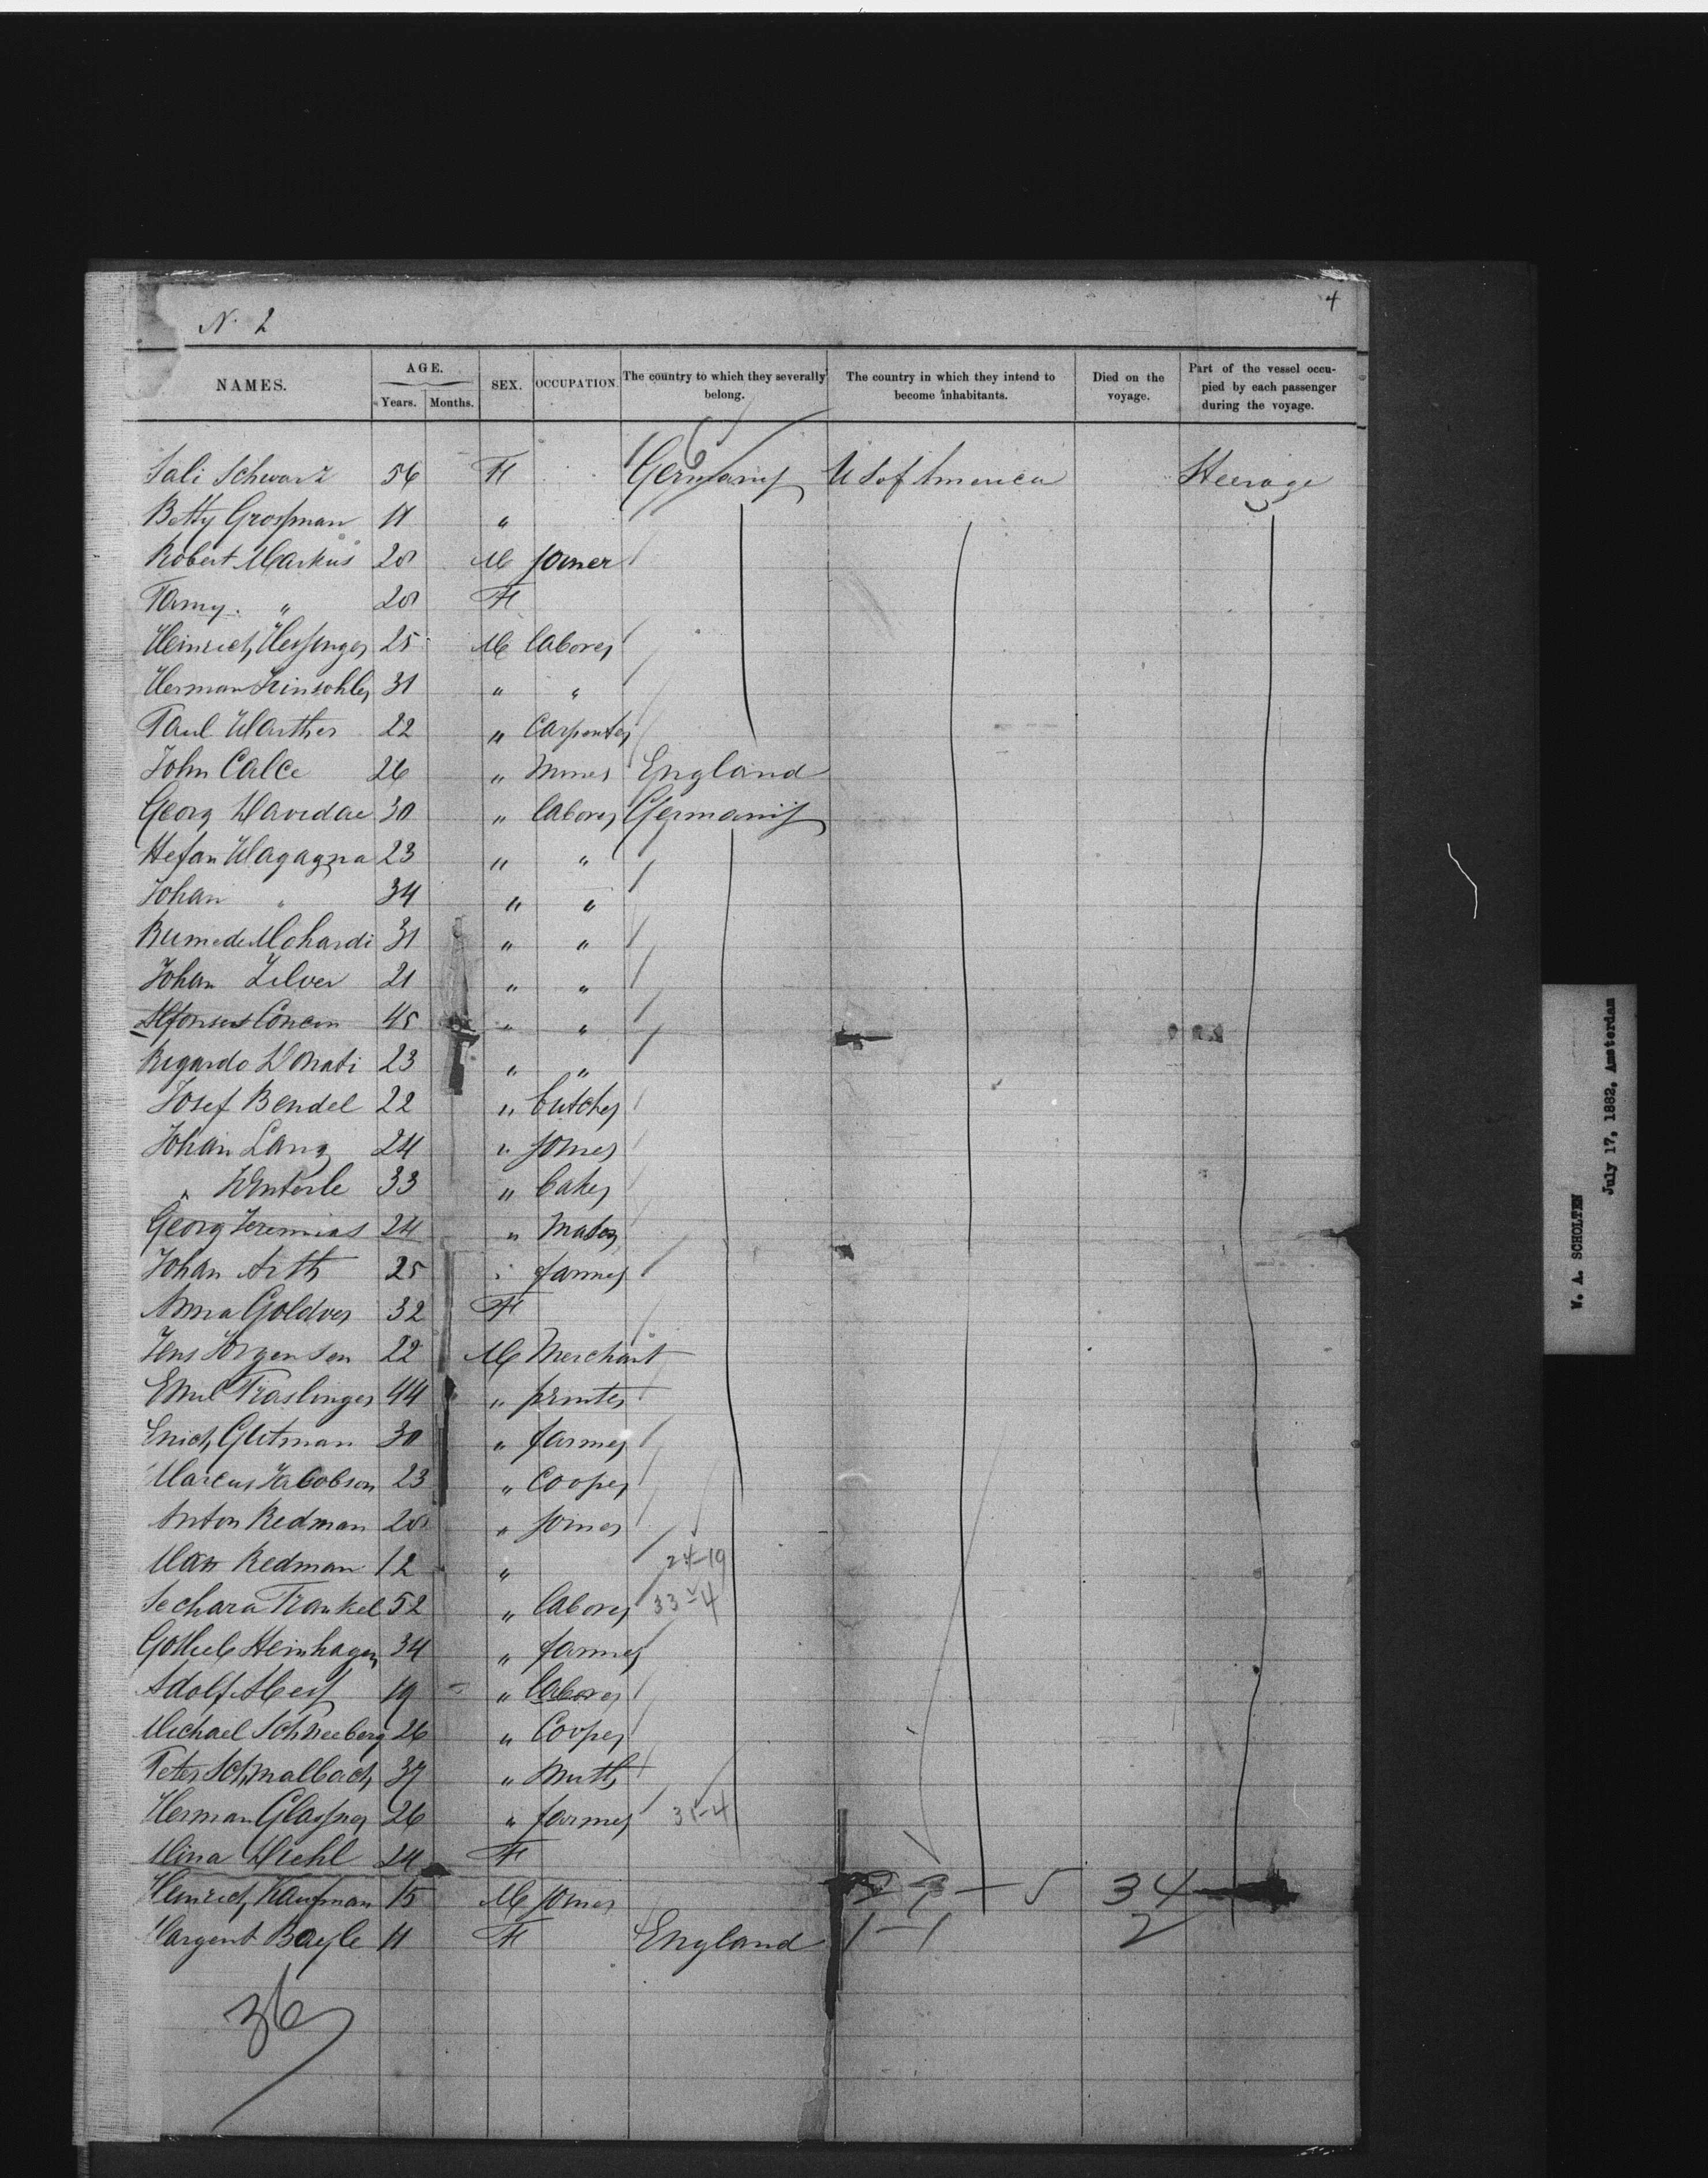 4
N. 2
NAMES. AGE. Years. Months. SEX. OCCUPATION. The country to which they severally belong. The country in which they intend to become inhabitants. Died on the voyage. Part of the vessel occupied by each passenger during the voyage.
Sali Schwarz 56 F Germany U S of America Steerage
Betty Grossman 11 "
Robert Markus 28 M joiner
Fanny " 28 F
Heinrich 25 M laborer
Herman 31 " "
Paul Walther 22 " Carpenter
John Calce 26 " Miner England
Georg Davidae 30 " labore Germany
Stefan 23 " "
Johan " 34 " "
31 " "
Johan Zilver 21 " "
Alfonsus Concin 45 " "
Rigardo Donati 23 " "
Josef Bendel 22 " butcher
Johan Lang 24 " joiner
" Winterle 33 " baker
Georg Jeremias 24 "
Johan Arth 25 " farmer
Anna Goldver 32 F
Jens Jörgensen 22 M Merchant
Emil Fraslinger 44 " printer
Erich Gutman 30 " farmer
Marcus Jacobson 23 " Cooper
Anton Redman 28 " joiner
Max Redman 12 " 24-19
Frankel 52 " laborer 33-4
Gotlieb Steinhagen 34 " farmer
Adolf 19 " laborer
Michael Schneeberg 26 " Cooper
Peter Schmalbach 37 " Smith
Herman Glassner 26 " farmer 31-4
Mina Diehl 24 F
Heinrich Kaufman 15 M joiner 29-5 34
Margent Bayle 11 F England 1-1 2
36
W. A. SCHOLTEN
July 17, 1882, Amsterdam